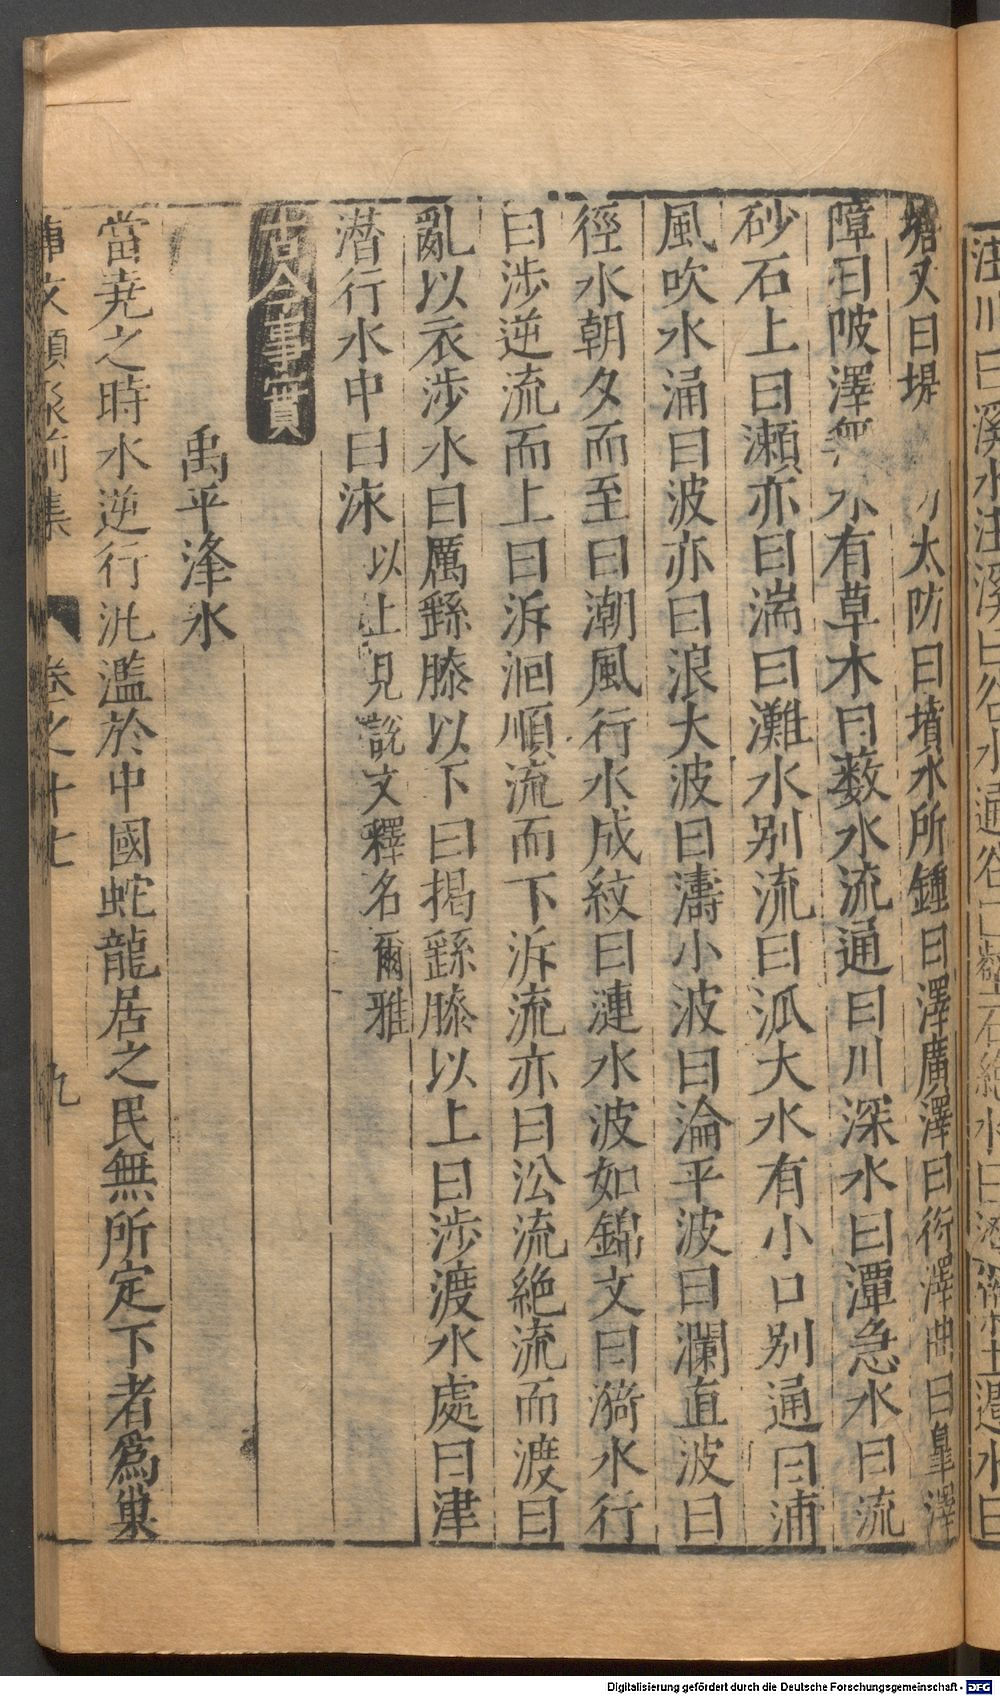 塘又曰堤太防曰墳水所鍾曰澤廣澤曰衍澤曲曰臯澤
障曰陂澤無水有草木曰薮水流通曰川深水曰潭急水曰流
砂石上曰瀬亦曰湍曰灘水别流曰泒大水有小口别通曰浦
風吹水涌曰波亦曰浪大波曰濤小波曰淪平波曰瀾直波曰
徑水朝夕而至曰潮風行水成紋曰漣水波如錦文曰漪水行
曰涉逆流而上曰泝洄順流而下泝流亦曰㳂流絶流而渡曰
亂以衣涉水曰厲繇膝以下曰揭繇膝以上曰涉渡水處曰津
潜行水中曰泳以上見説文釋名爾雅
古今事實
禹平洚水
當尭之時水逆行汎濫於中國蛇龍居之民無所定下者爲巢
事文類聚前集 卷之十七 九
注川曰溪水注溪曰谷水通谷
Digitalisierung gefördert durch die Deutsche Forschungsgemeinschaft - DFG